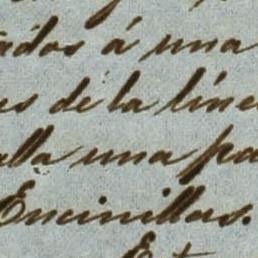 ados á una
es de la líne
alla una pa
Encinillas.